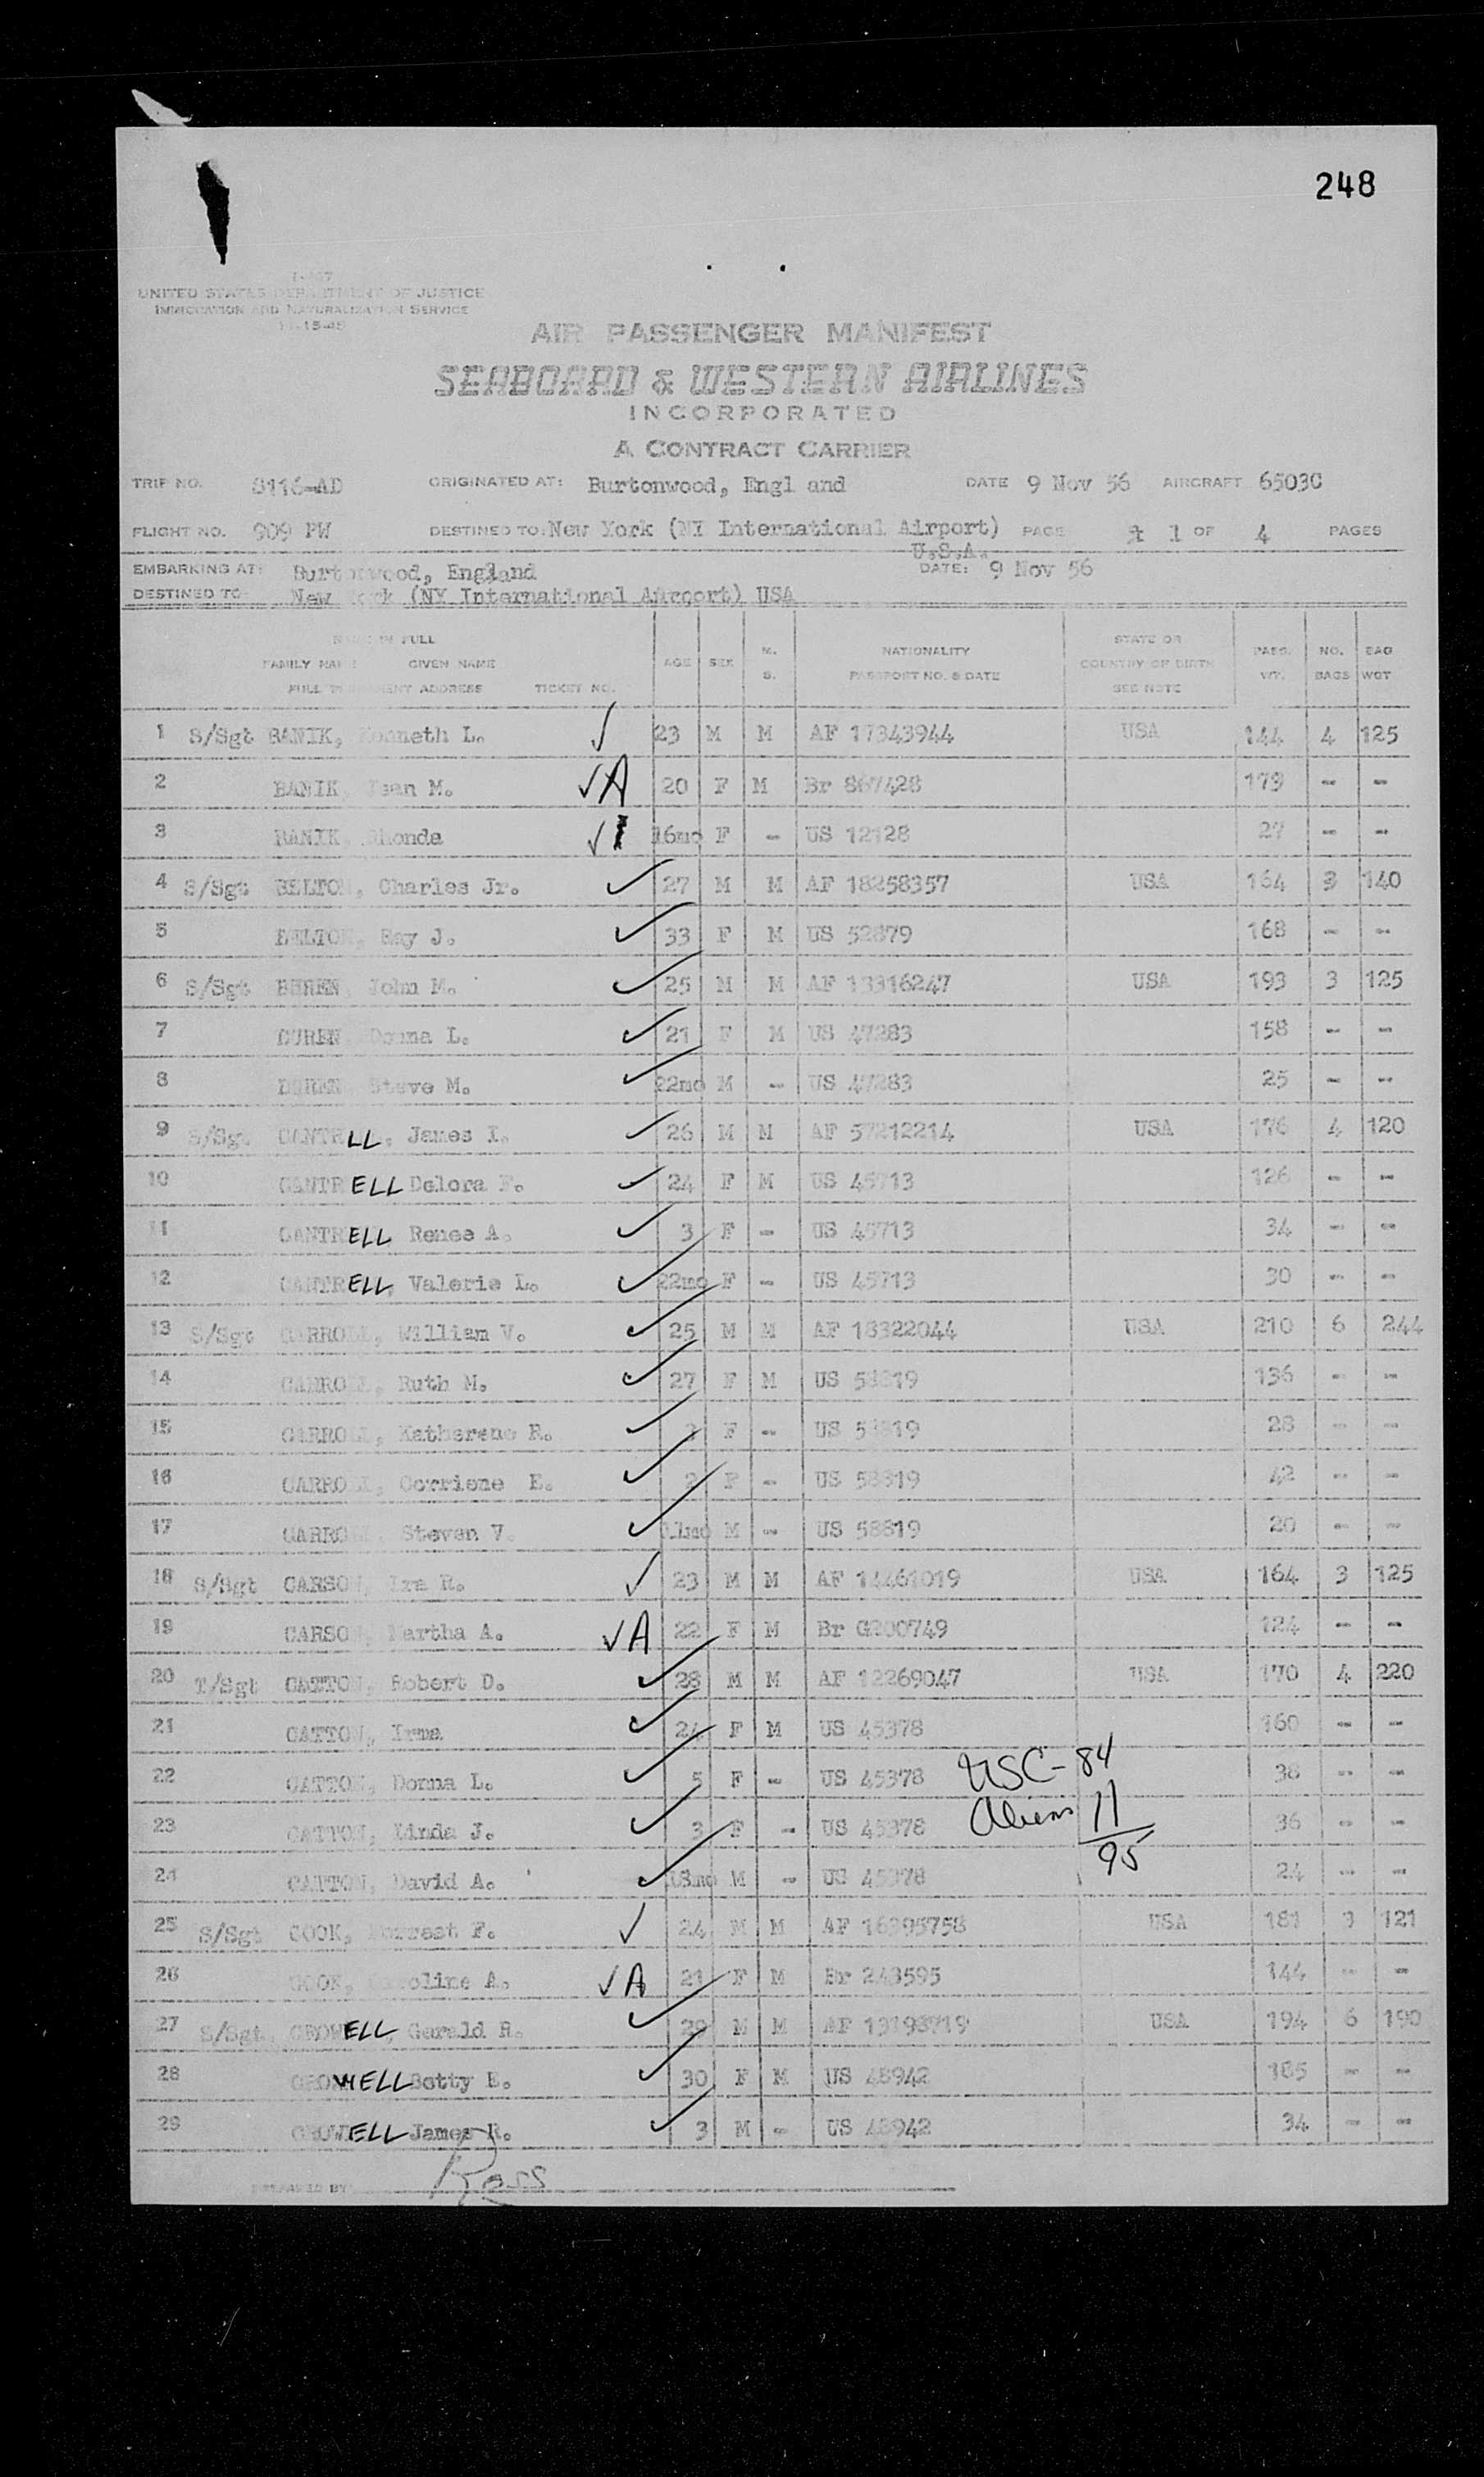 248
UNITED STATES DEPARTMENT OF JUSTICE
IMMIGRATION AND NATURALIZATION SERVICE
AIR PASSENGER MANIFEST
SEABOARD & WESTERN AIRLINES
INCORPORATED
A CONTRACT CARRIER
TRIP NO. 8116-AD ORIGINATED AT: Burtonwood, Engl and DATE 9 Nov 56 AIRCRAFT 6503C
FLIGHT NO. 909 PW DESTINED TO: New York (NY International Airport) PAGE 1 OF 4 PAGES
U.S.A.
EMBARKING AT: Burtonwood, England DATE: 9 Nov 56
DESTINED TO New York (NY International Airport) USA
NAME IN FULL
FAMILY NAME GIVEN NAME
FULL PERMANENT ADDRESS TICKET NO.
AGE SEX M. S.
NATIONALITY
PASSPORT NO. & DATE
STATE OR
COUNTRY OF BIRTH
SEE NOTE
PASS. WT. NO. BAGS BAG WGT
1 S/Sgt BANIK, Kenneth L. 23 M M AF 17343944 USA 144 4 125
2 BANIK, Jean M. A 20 F M Br 867428 179 - -
3 BANIK Rhonda 16mo F - US 12128 27 - -
4 S/Sgt BELTON, Charles Jr. 27 M M AF 18258357 USA 164 3 140
5 BELTON, Ray J. 33 F M US 52879 168 - -
6 S/Sgt John M. 25 M M AF 13316247 USA 193 3 125
7 BUREN Donna L. 21 F M US 47283 158 - -
8 BUREN Steve M. 22mo M - US 47283 25 - -
9 S/Sgt CANTRLL, James I. 26 M M AF 57212214 USA 176 4 120
10 CANTRELL Delora F. 24 F M US 45713 126 - -
11 CANTRELL Renee A. 3 F - US 45713 34 - -
12 CANTRELL, Valerie L. 22mo F - US 45713 30 - -
13 S/Sgt CARROLL, William V. 25 M M AF 18322044 USA 210 6 244
14 CARROLL, Ruth M. 27 F M US 58819 136 - -
15 CARROLL, Katherene R. F - US 58819 28 - -
16 CARROLL, Corriene E. 2 F - US 58819 42 - -
17 CARROLL, Steven V. 11mo M - US 58819 20 - -
18 S/Sgt CARSON, Ira R. 23 M M AF 14461019 USA 164 3 125
19 CARSON, Martha A. A 22 F M Br G200749 124 - -
20 T/Sgt CATTON, Robert D. 28 M M AF 12269047 USA 170 4 220
21 CATTON, Irma 24 F M US 45378 160 - -
22 CATTON, Donna L. 5 F - US 45378 38 - -
USC- 84
23 CATTON, Linda J. 3 F - US 45378 36 - -
Aliens 11
95
24 CATTON, David A. M - US 45378 24 - -
25 S/Sgt COOK, Forrest F. 24 M M AF 16395758 USA 181 3 121
26 COOK, A. A 21 F M Br 243595 144 - -
27 S/Sgt CROWELL, Gerald R. 29 M M AF 13198719 USA 194 6 190
28 CROWELL Betty E. 30 F M US 48942 185 - -
29 CROWELL James R. 3 M - US 48942 34 - -
PREPARED BY Ross